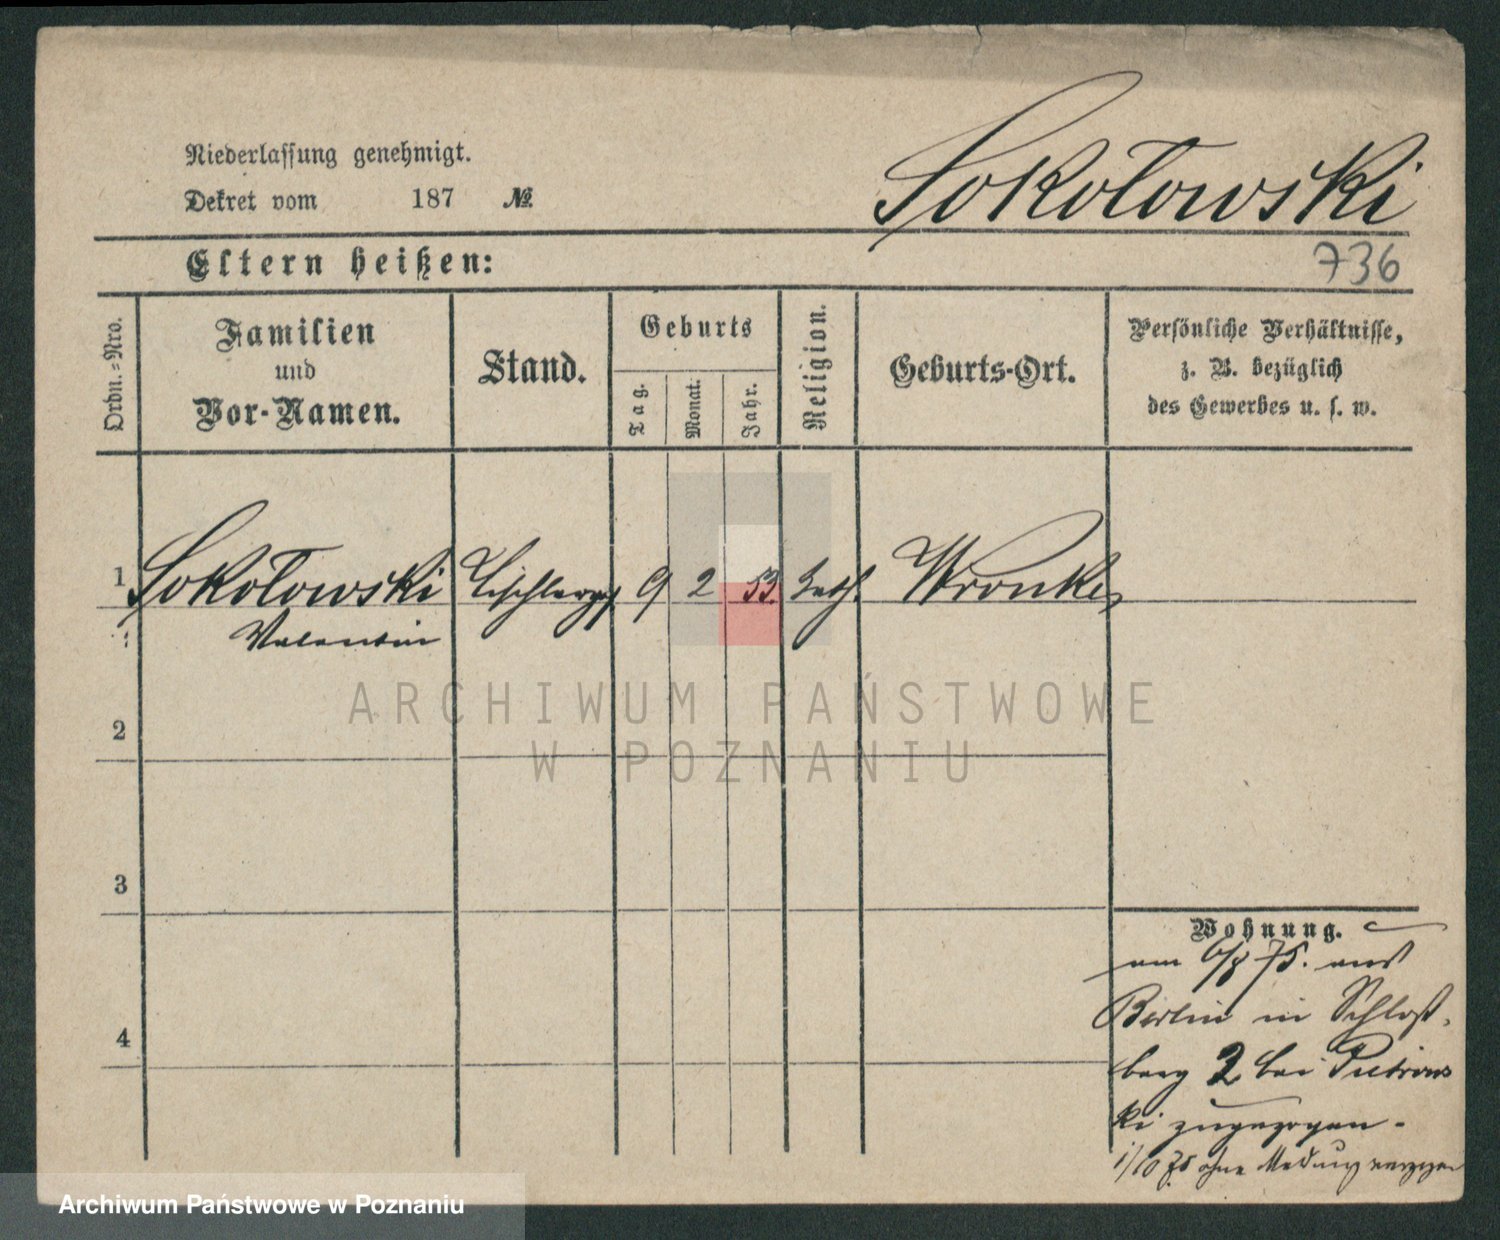 Niederlassung genehmigt.
Dekret vom 187 №
Sokołowski
Eltern heißen:
736
Ordn.-Nro.
Familien
und
Vor-Namen.
Stand.
Geburts
Tag.
Monat.
Jahr.
Religion.
Geburts-Ort.
Persönliche Verhältnisse,
z. B. bezüglich
des Gewerbes u. s. w.
1 Sokołowski Tischlerges 9 2 53. kath. Wronke
Valentin
2
3
4
Wohnung.
am 6/8 75. aus
Berlin in Schloß-
berg 2 bei Pietrows
ki zugezogen -
1/10 75 ohne Meldung verzogen
ARCHIWUM PAŃSTWOWE
W POZNANIU
Archiwum Państwowe w Poznaniu